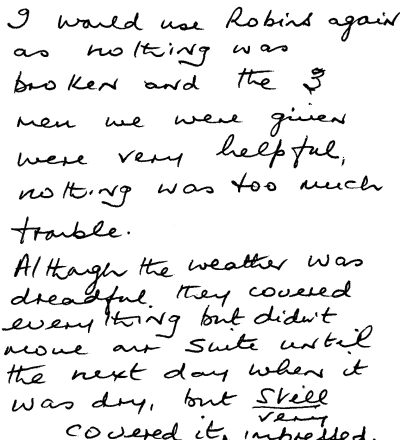 I would use Robins again
as nothing was
broken and the 3
men we were given
were very helpful,
nothing was too much
trouble.
Although the weather was
dreadful. they covered
everything but didn't
move our suite until
the next day when it
was dry, but still
very
covered it, impressed.